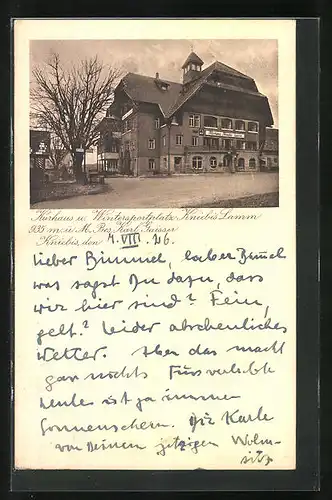 Kurhaus u. Wintersportplatz Kniebis Lamm
935 m ü. M. Bes. Karl Gaisser
Kniebis, den 4. VIII. 26.
Lieber Bimmel, lieber Bimel
was sagst Du dazu, dass
wir hier sind? Fein,
gelt? Leider abscheuliches
Wetter. Aber das macht
gar nichts. Für verliebte
Leute ist ja immer
Sonnenschein. Die Karte
von Deinem jetzigen Wohn-
sitz